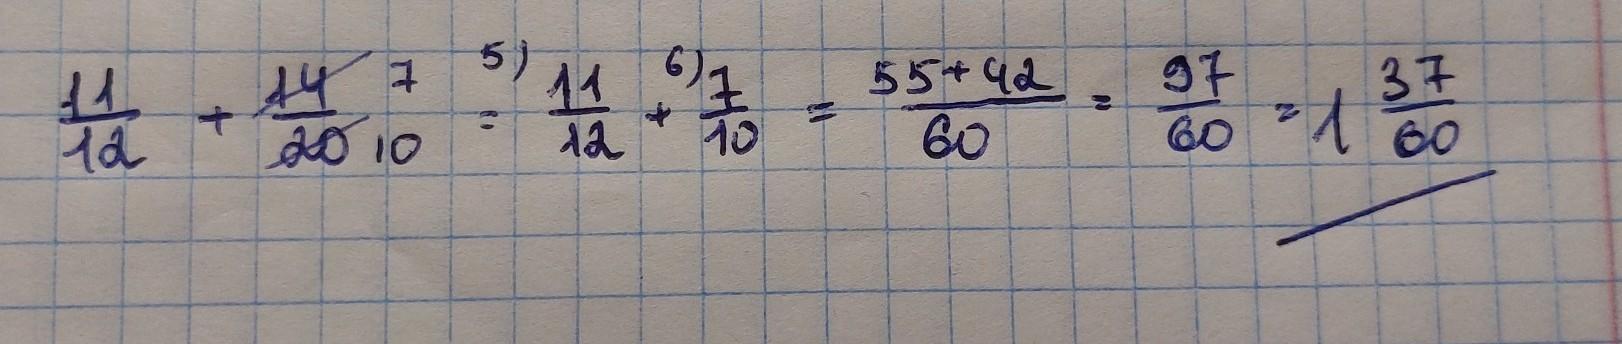 11/12 + 14/20 7/10 = 5) 11/12 + 6) 7/10 = 55+42/60 = 97/60 = 1 37/60